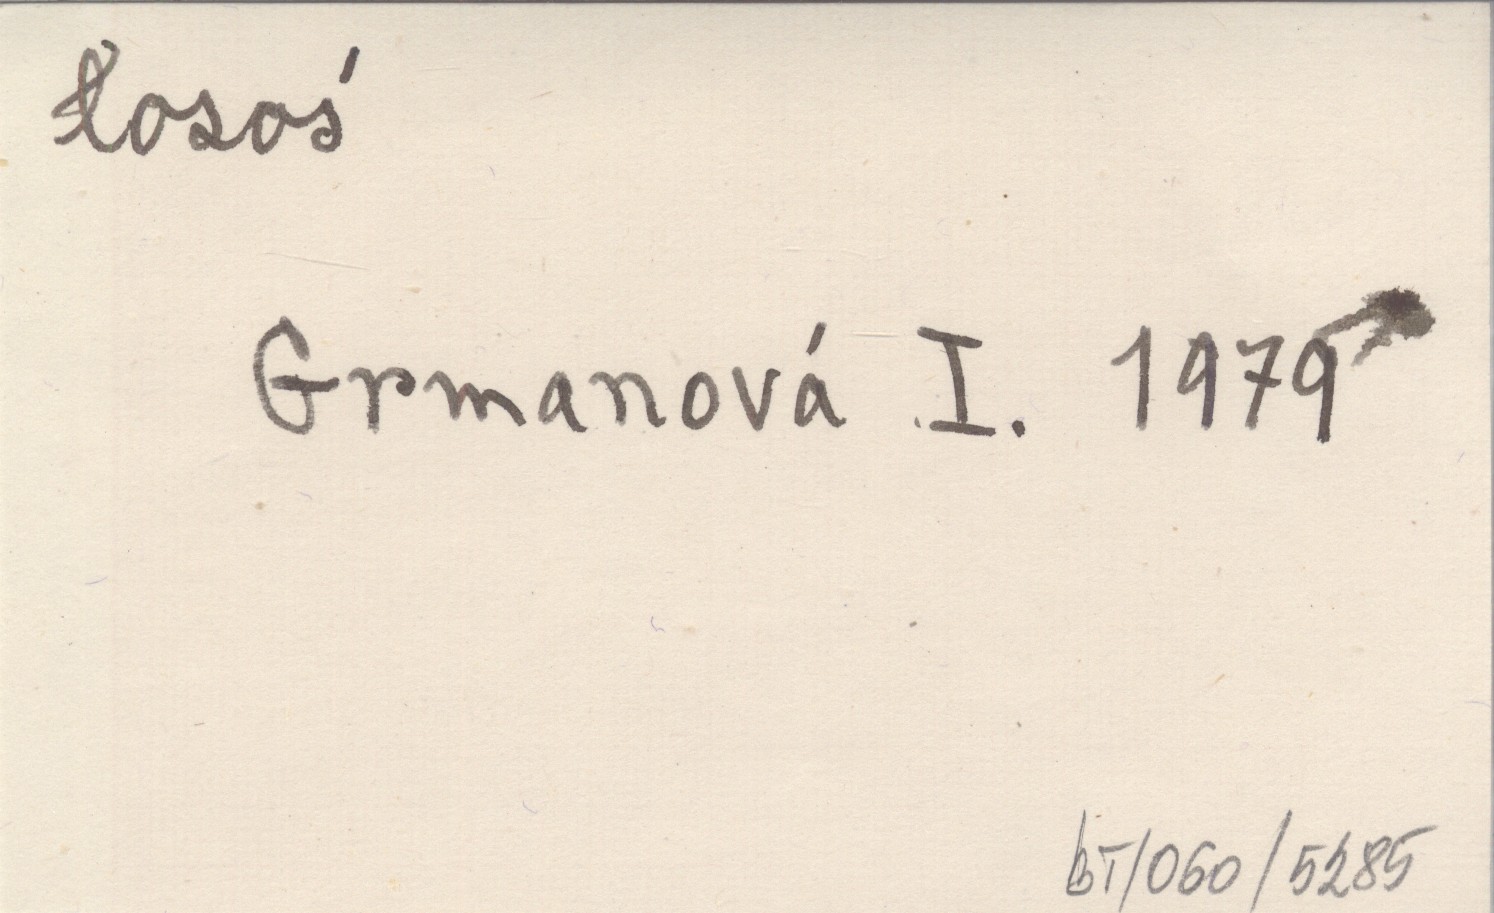 łosoś
Grmanová I. 1979
bT/060/5285